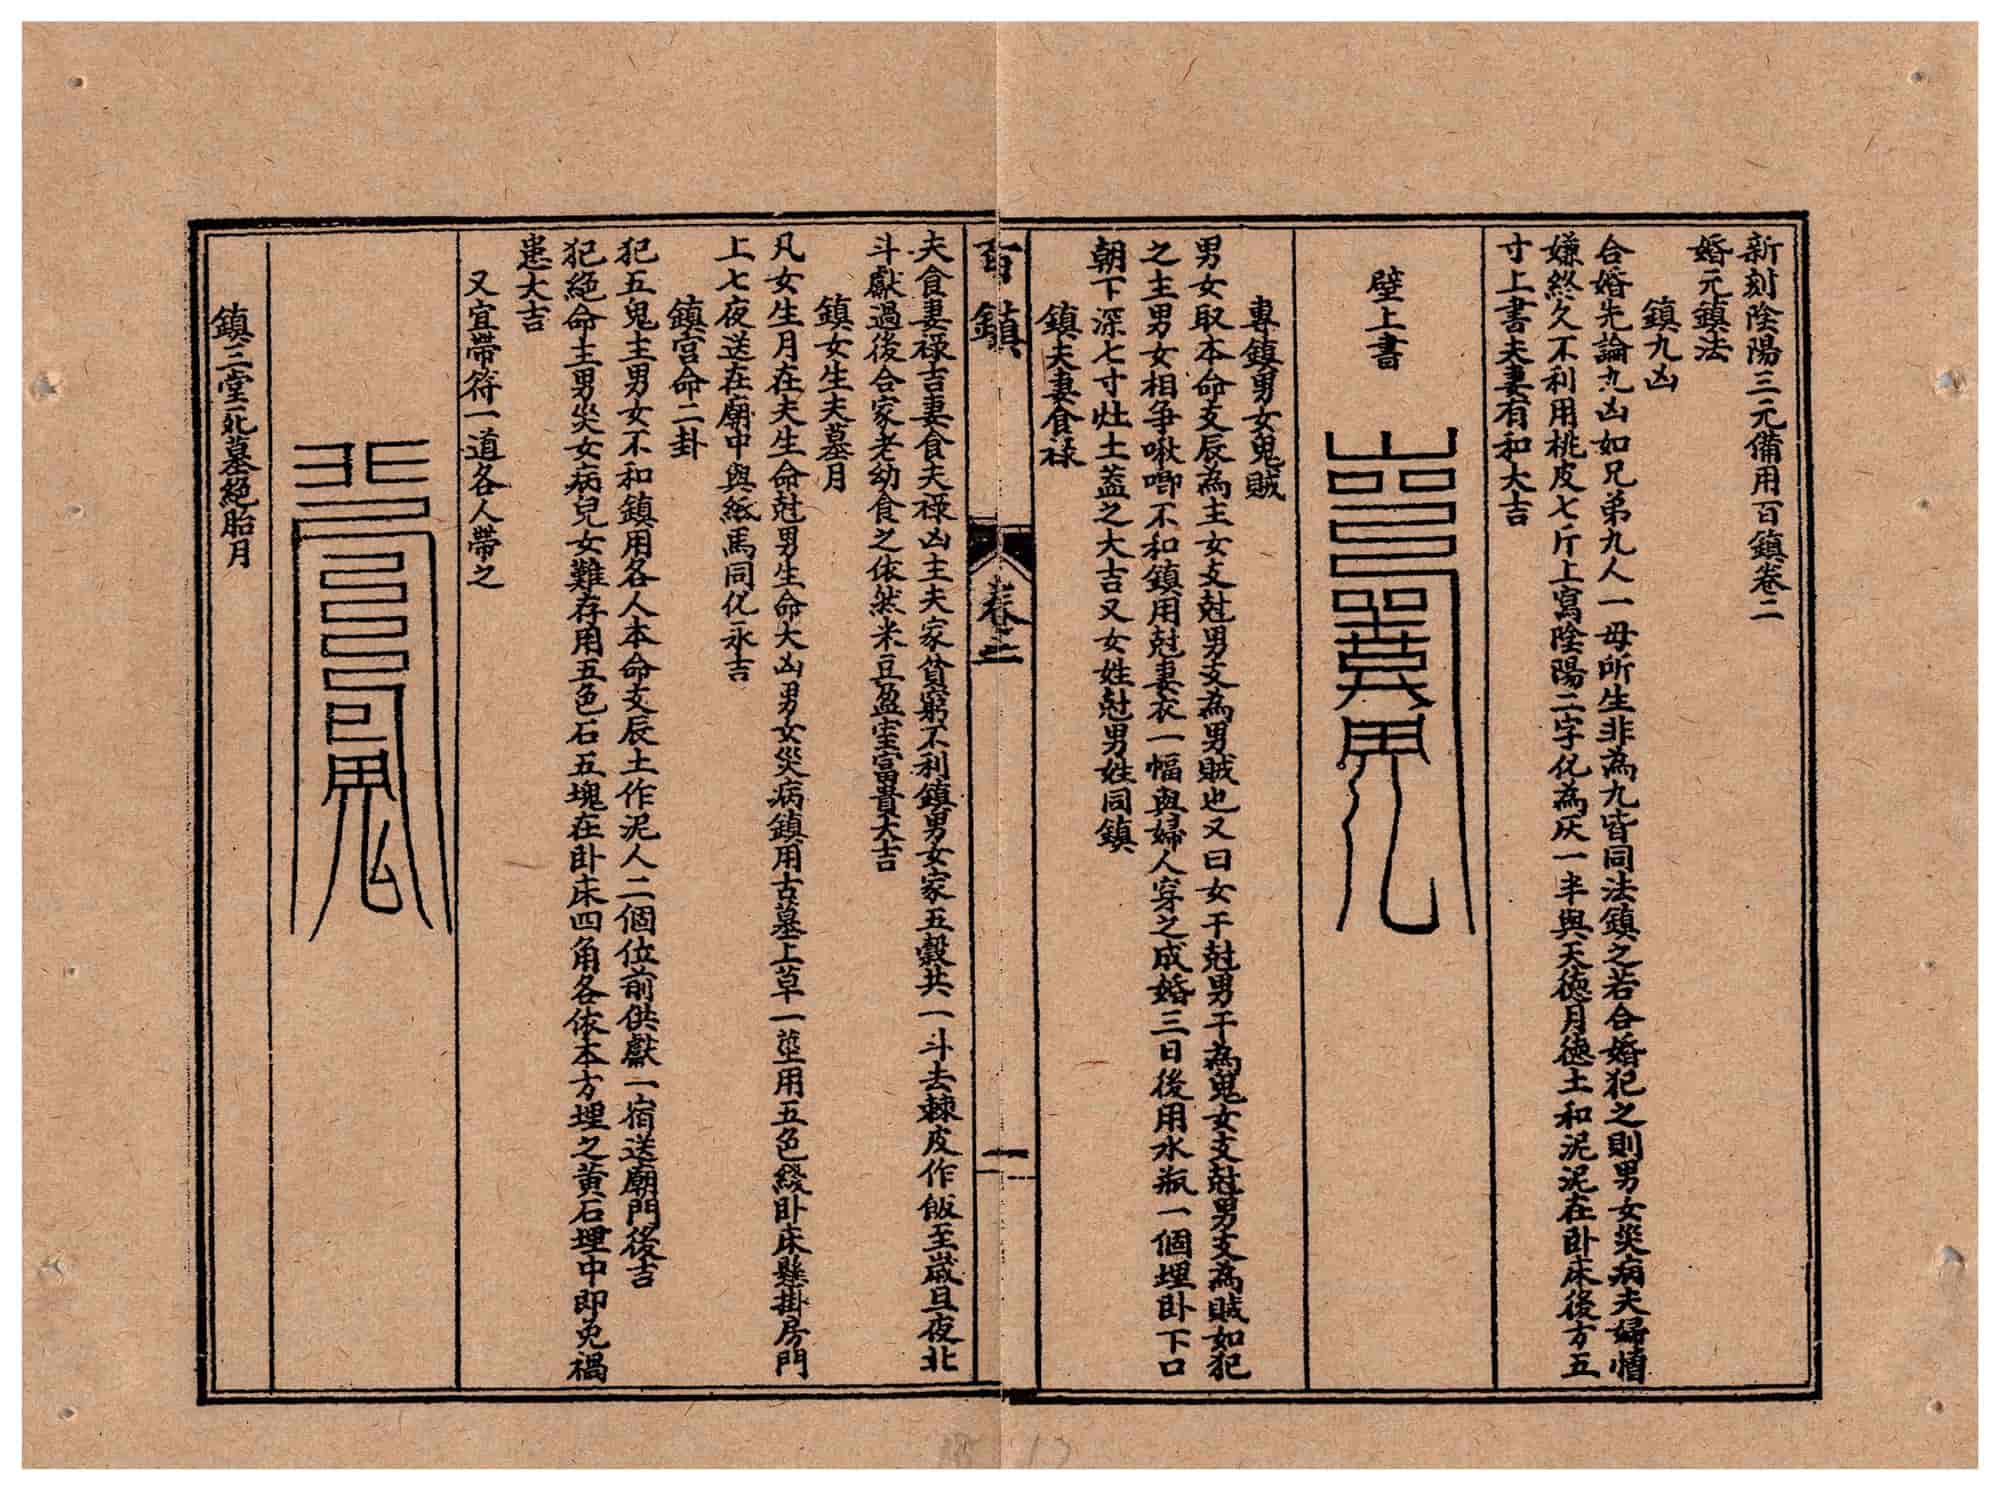 新刻陰陽三元備用百鎮卷二
婚元鎮法
鎮九凶
合婚先論九凶如兄弟九人一毋所生非為九皆同法鎮之若合婚犯之則男女災病夫婦憎
嫌終久不利用桃皮七斤上寫陰陽二字化為灰一半與天德月德土和泥泥在卧床後方五
寸上書夫妻有和大吉
壁上書
專鎮男女鬼賊
男女取本命支辰為主女支尅男支為男賊也又曰女干尅男干為鬼女支尅男支為賊如犯
之主男女相爭啾唧不和鎮用尅妻衣一幅與婦人穿之成婚三日後用水瓶一個埋卧下口
朝下深七寸灶土蓋之大吉又女姓尅男姓同鎮
鎮夫妻食祿
百鎮 卷二 一
夫食妻祿吉妻食夫祿凶主夫家貧窮不利鎮男女家五穀共一斗去棘皮作飯至歲旦夜北
斗獻過後合家老幼食之依然米豆盈室富貴大吉
鎮女生夫墓月
凡女生月在夫生命尅男生命大凶男女災病鎮用古墓上草一莖用五色綫卧床懸掛房門
上七夜送在廟中與紙馬同化永吉
鎮宮命二卦
犯五鬼主男女不和鎮用各人本命支辰土作泥人二個位前供獻一宿送廟門後吉
犯絕命主男災女病兒女難存用五色石五塊在卧床四角各依本方埋之黃石埋中即免禍
患大吉
又宜帶符一道各人帶之
鎮三堂死墓絕胎月